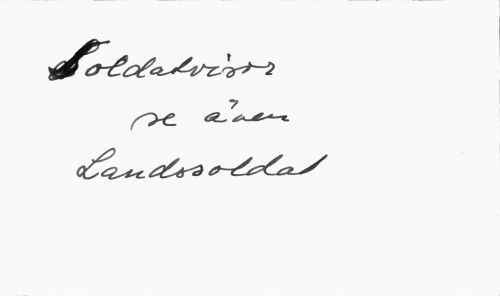 Soldatvisor
se även
Landssoldat